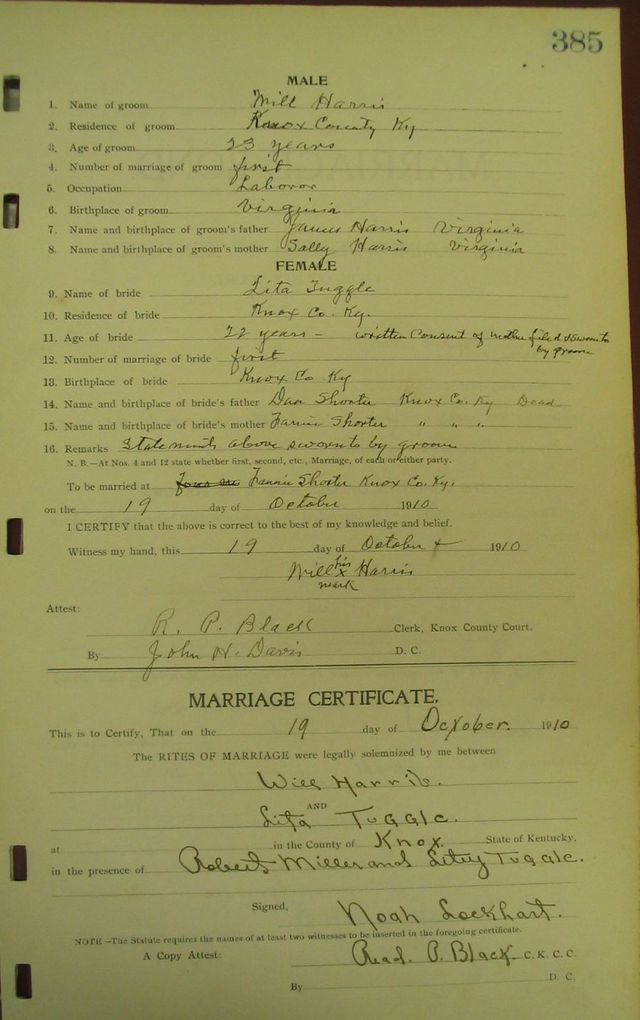 385
MALE
1. Name of groom Will Harris
2. Residence of groom Knox County Ky
3. Age of groom 23 years
4. Number of marriage of groom first
5. Occupation Laboror
6. Birthplace of groom Virginia
7. Name and birthplace of groom's father James Harris Virginia
8. Name and birthplace of groom's mother Sally Harris Virginia
FEMALE
9. Name of bride Lita Tuggle
10. Residence of bride Knox Co. Ky.
11. Age of bride 22 years – written Consent of mother filed & sworn to
by groom
12. Number of marriage of bride first
13. Birthplace of bride Knox Co Ky
14. Name and birthplace of bride's father Dan Shorter Knox Co. Ky Dead
15. Name and birthplace of bride's mother Fannie Shorter " " "
16. Remarks Statements above sworn to by groom
N. B.—At Nos. 4 and 12 state whether first, second, etc., Marriage, of each or either party.
To be married at Fannie Shorter Knox Co. Ky.
on the 19 day of October 1910
I CERTIFY that the above is correct to the best of my knowledge and belief.
Witness my hand, this 19 day of October 1910
Will his x mark Harris
Attest:
R. P. Black Clerk, Knox County Court.
By John H. Davis D. C.
MARRIAGE CERTIFICATE.
This is to Certify, That on the 19 day of October. 1910
The RITES OF MARRIAGE were legally solemnized by me between
Will Harris.
AND
Lita Tuggle.
at in the County of Knox. State of Kentucky,
in the presence of Robert Miller and Litey Tuggle.
Signed, Noah Lockhart.
NOTE—The Statute requires the names of at least two witnesses to be inserted in the foregoing certificate.
A Copy Attest: Read. P. Black C. K. C. C.
By D. C.